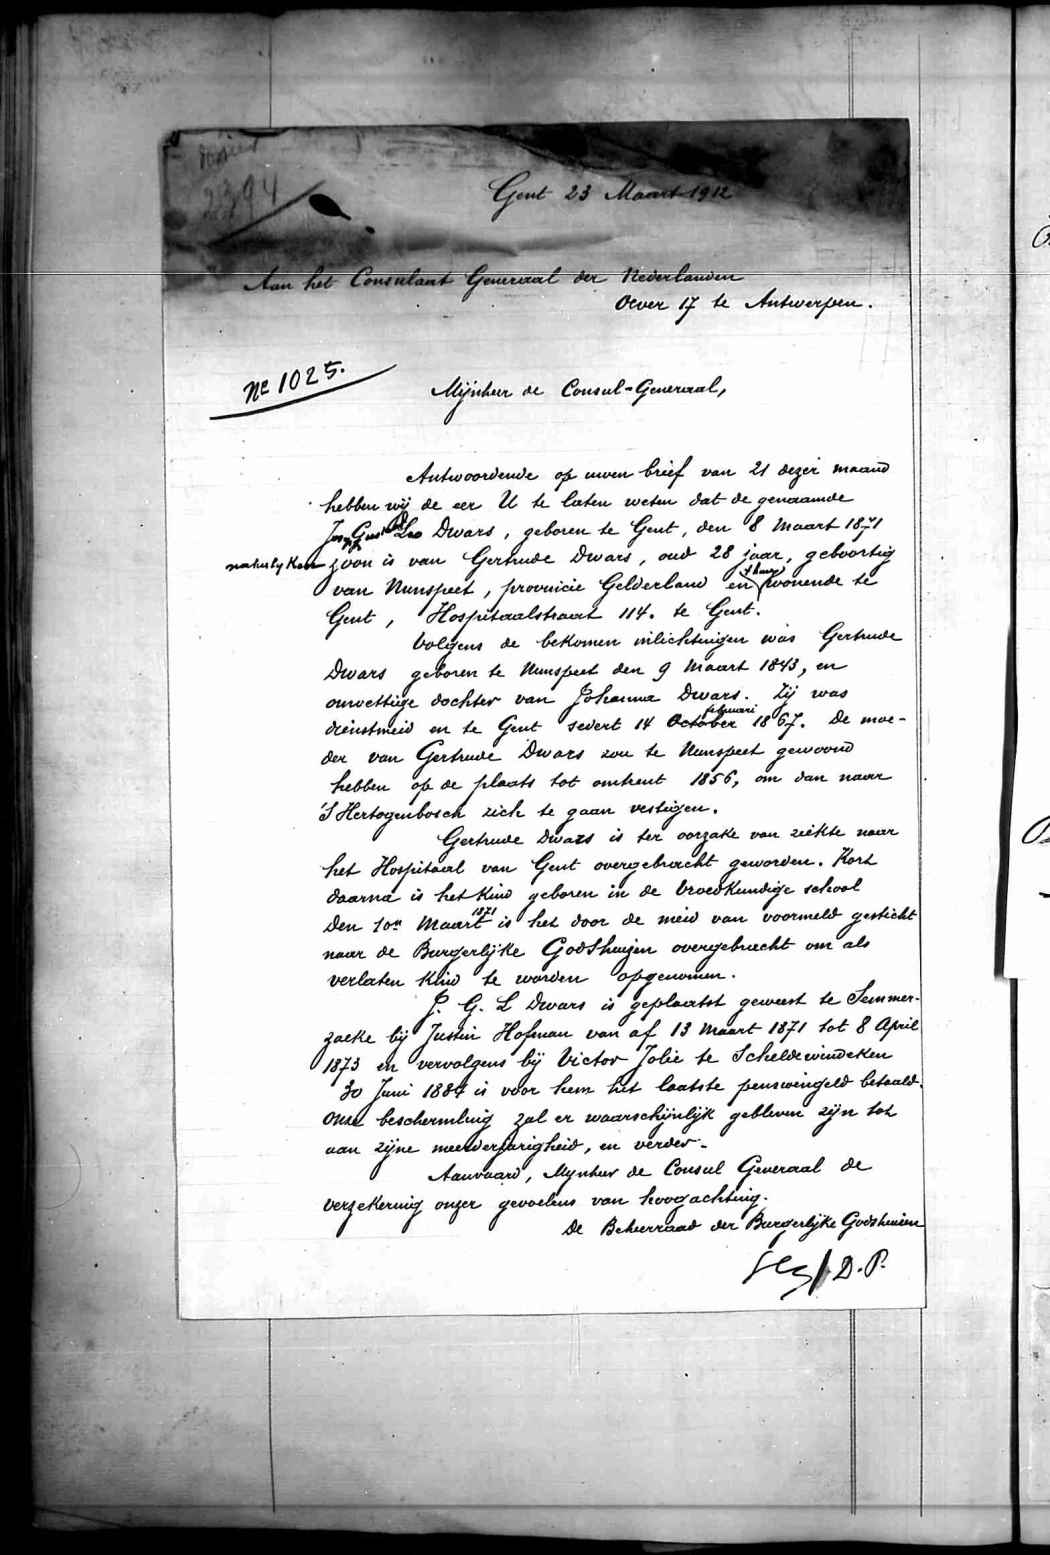 2394
Gent 23 Maart 1912
Aan het Consulaat Generaal der Nederlanden
Oever 17 te Antwerpen.
No 1025.
Mijnheer de Consul-Generaal,
Antwoordende op uwen brief van 21 dezer maand
hebben wij de eer U te laten weten dat de genaamde
Leo Dwars, geboren te Gent, den 8 Maart 1871
natuurlyken zoon is van Gertrude Dwars, oud 28 jaar, geboortig
van Nunspeet, provincie Gelderland en wonende te
Gent, Hospitaalstraat 114. te Gent.
Volgens de bekomen inlichtingen was Gertrude
Dwars geboren te Nunspeet den 9 Maart 1843, en
onwettige dochter van Johanna Dwars. Zij was
dienstmeid en te Gent sedert 14 October februari 1867. De moe-
der van Gertrude Dwars zou te Nunspeet gewoond
hebben op de plaats tot omtrent 1856, om dan naar
'S Hertogenbosch zich te gaan vestigen.
Gertrude Dwars is ter oorzake van ziekte naar
het Hospitaal van Gent overgebracht geworden. Kort
daarna is het kind geboren in de Vroedkundige school
Den 10n Maart 1871 is het door de meid van voormeld gesticht
naar de Burgerlijke Godshuizen overgebracht om als
verlaten kind te worden opgenomen.
J. G. L Dwars is geplaatst geweest te Semmer-
zaeke bij Justin Hofman van af 13 Maart 1871 tot 8 April
1873 en vervolgens bij Victor Jolie te Scheldewindeken
30 Juni 1884 is voor hem het laatste pensioengeld betaald.
Onze bescherming zal er waarschijnlijk gebleven zijn tot
aan zijne meerderjarigheid, en verder.
Aanvaard, Mynheer de Consul Generaal de
verzekering onzer gevoelens van hoogachting.
De Beheerraad der Burgerlijke Godshuizen
D. P.